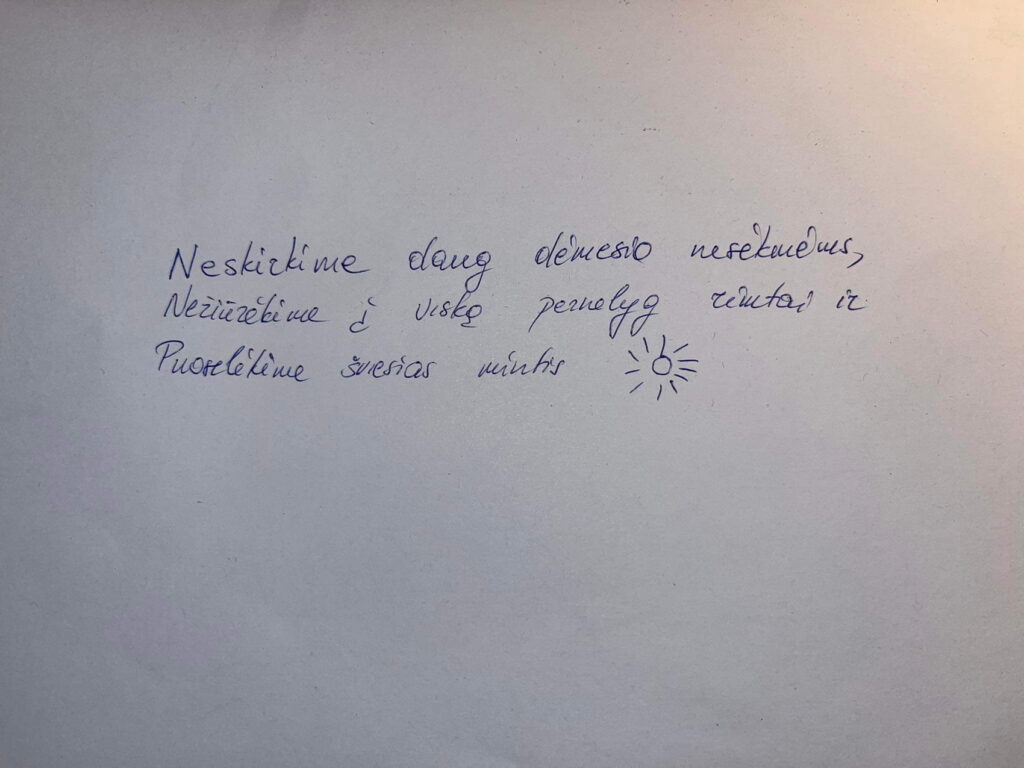 Neskirkime daug dėmesio nesėkmėms,
Nežiūrėkime į viską pernelyg rimtai ir
Puoselėkime šviesias mintis